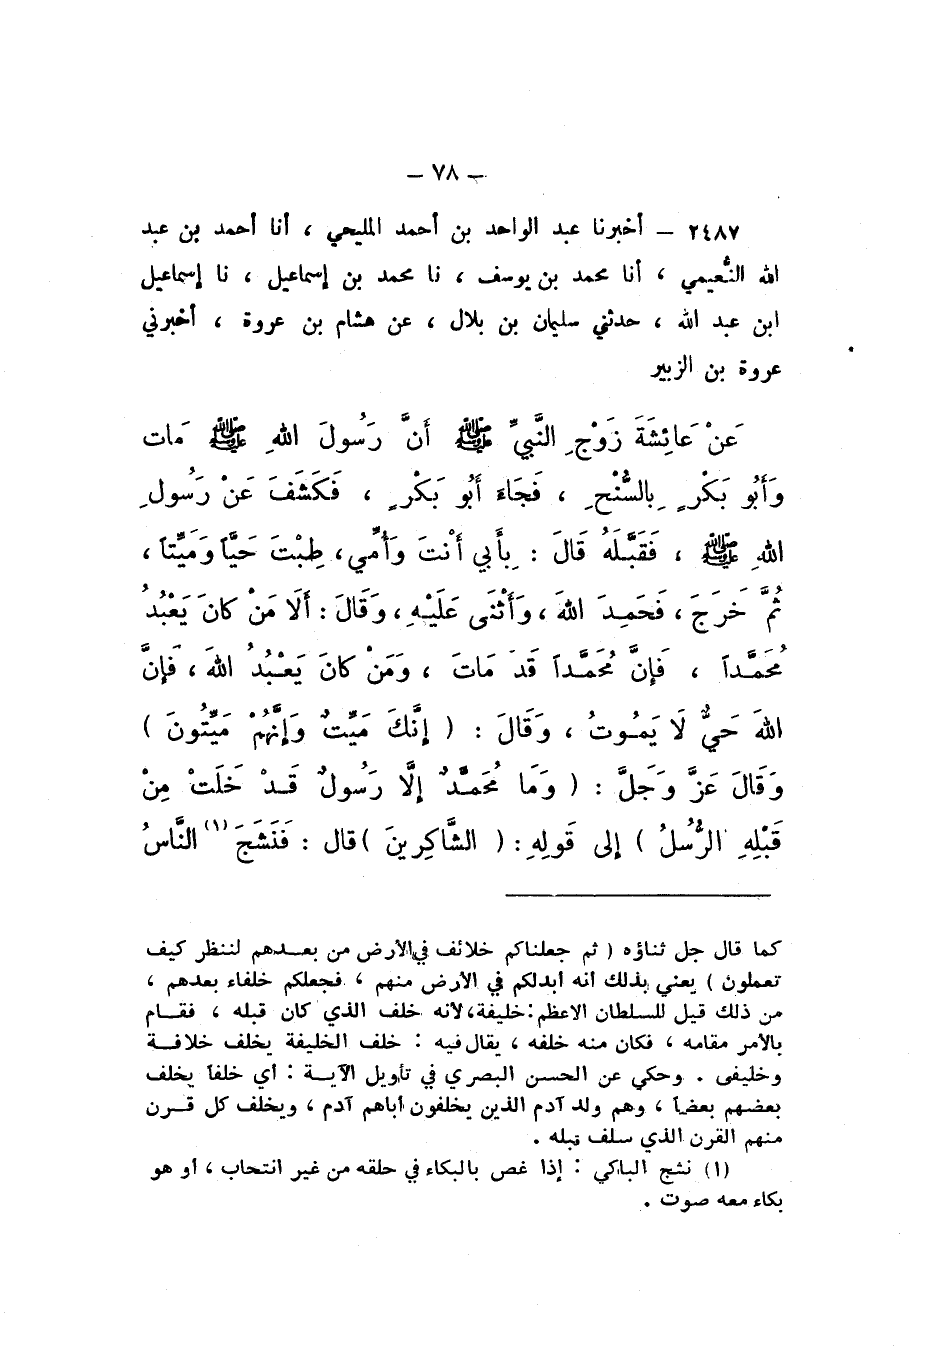 – ٧٨ –
٢٤٨٧ – أخبرنا عبد الواحد بن أحمد المليحي ، أنا أحمد بن عبد
الله النُّعيمي ، أنا محمد بن يوسف ، نا محمد بن إسماعيل ، نا إسماعيل
ابن عبد الله ، حدثني سليمان بن بلال ، عن هشام بن عروة ، أخبرني
عروة بن الزبير
عَنْ عَائِشَةَ زَوْجِ النَّبيِّ ﷺ أَنَّ رَسُولَ اللهِ ﷺ مَات
وَأَبُو بَكْرٍ بِالسُّنْحِ ، فَجَاءَ أَبُو بَكْرٍ ، فَكَشَفَ عَنْ رَسُولِ
اللهِ ﷺ ، فَقَبَّلَهُ قَالَ : بِأَبي أَنْتَ وَأُمِّي، طِبْتَ حَيَّاً وَمَيِّتاً ،
ثُمَّ خَرَجَ ، فَحَمِدَ اللهَ ، وَأَثْنَى عَلَيْهِ ، وَقَالَ : أَلَا مَنْ كانَ يَعْبُدُ
مُحَمَّداً ، فَإِنَّ مُحَمَّداً قَد مَاتَ ، وَمَنْ كَانَ يَعْبُدُ اللهَ ، فَإِنَّ
اللهَ حَيٌّ لَا يَمُوتُ ، وَقَالَ : ( إِنَّكَ مَيِّتٌ وَإِنَّهُمْ مَيِّتُونَ )
وَقَالَ عَزَّ وَجَلَّ : ( وَمَا مُحَمَّدٌ إِلَّا رَسُولٌ قَدْ خَلَتْ مِنْ
قَبْلِهِ الرُّسُلُ ) إلى قَولِهِ : ( الشَّاكِرِينَ ) قال : فَنَشَجَ (١) النَّاسُ
كما قال جل ثناؤه ( ثم جعلناكم خلائف في الأرض من بعدهم لننظر كيف
تعملون ) يعني بذلك أنه أبدلكم في الأرض منهم ، فجعلكم خلفاء بعدهم ،
من ذلك قيل للسلطان الاعظم : خليفة ، لأنه خلف الذي كان قبله ، فقام
بالأمر مقامه ، فكان منه خلفه ، يقال فيه : خلف الخليفة يخلف خلافة
وخليفى . وحكي عن الحسن البصري في تأويل الآية : أي خلفاً يخلف
بعضهم بعضاً ، وهم ولد آدم الذين يخلفون أباهم آدم ، ويخلف كل قرن
منهم القرن الذي سلف قبله .
(١) نشج الباكي : إذا غص بالبكاء في حلقه من غير انتحاب ، أو هو
بكاء معه صوت .